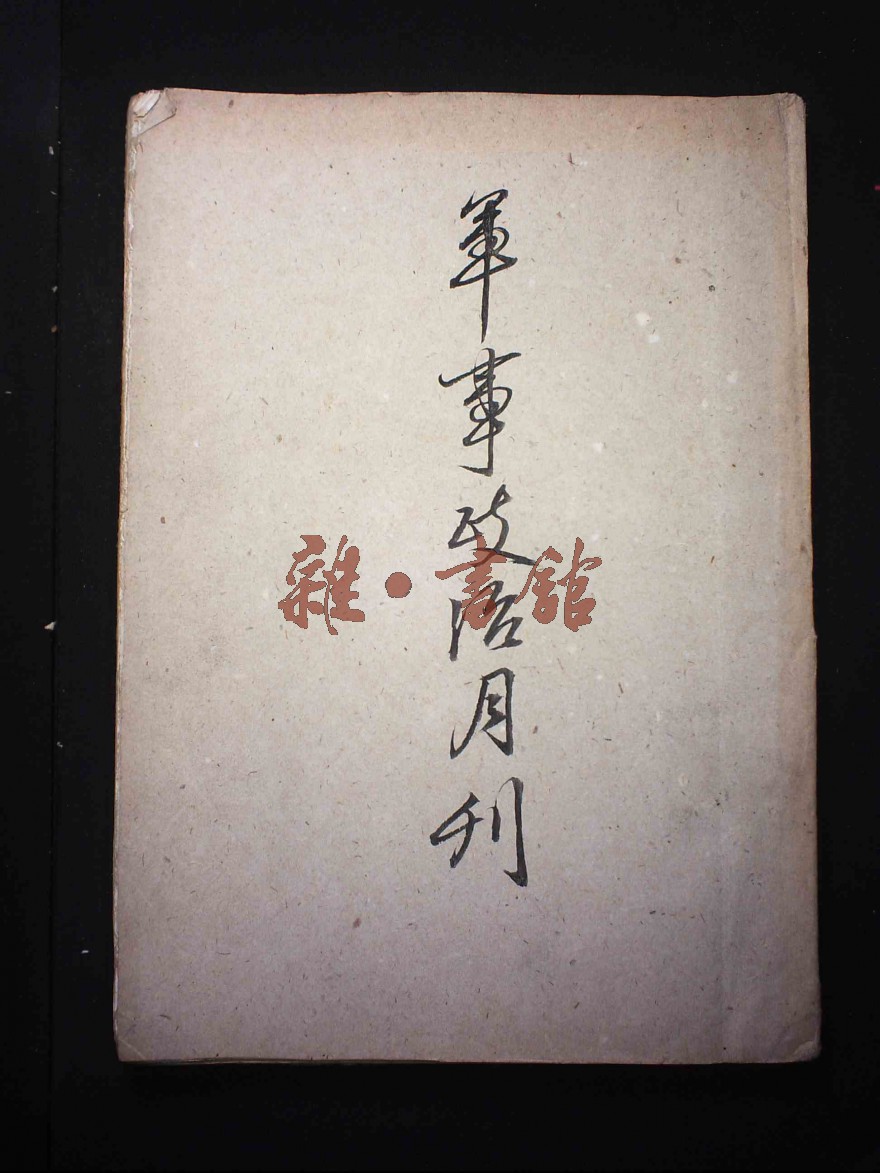 軍事政治月刊
雜·書館